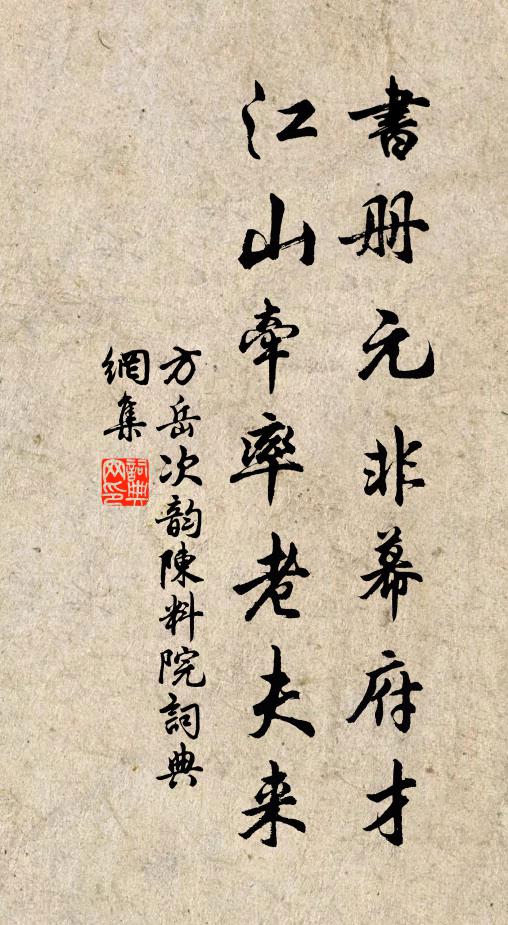 書册元非幕府才
江山牽率老夫来
方岳次韵陳料院詞典
網集
詞典网印